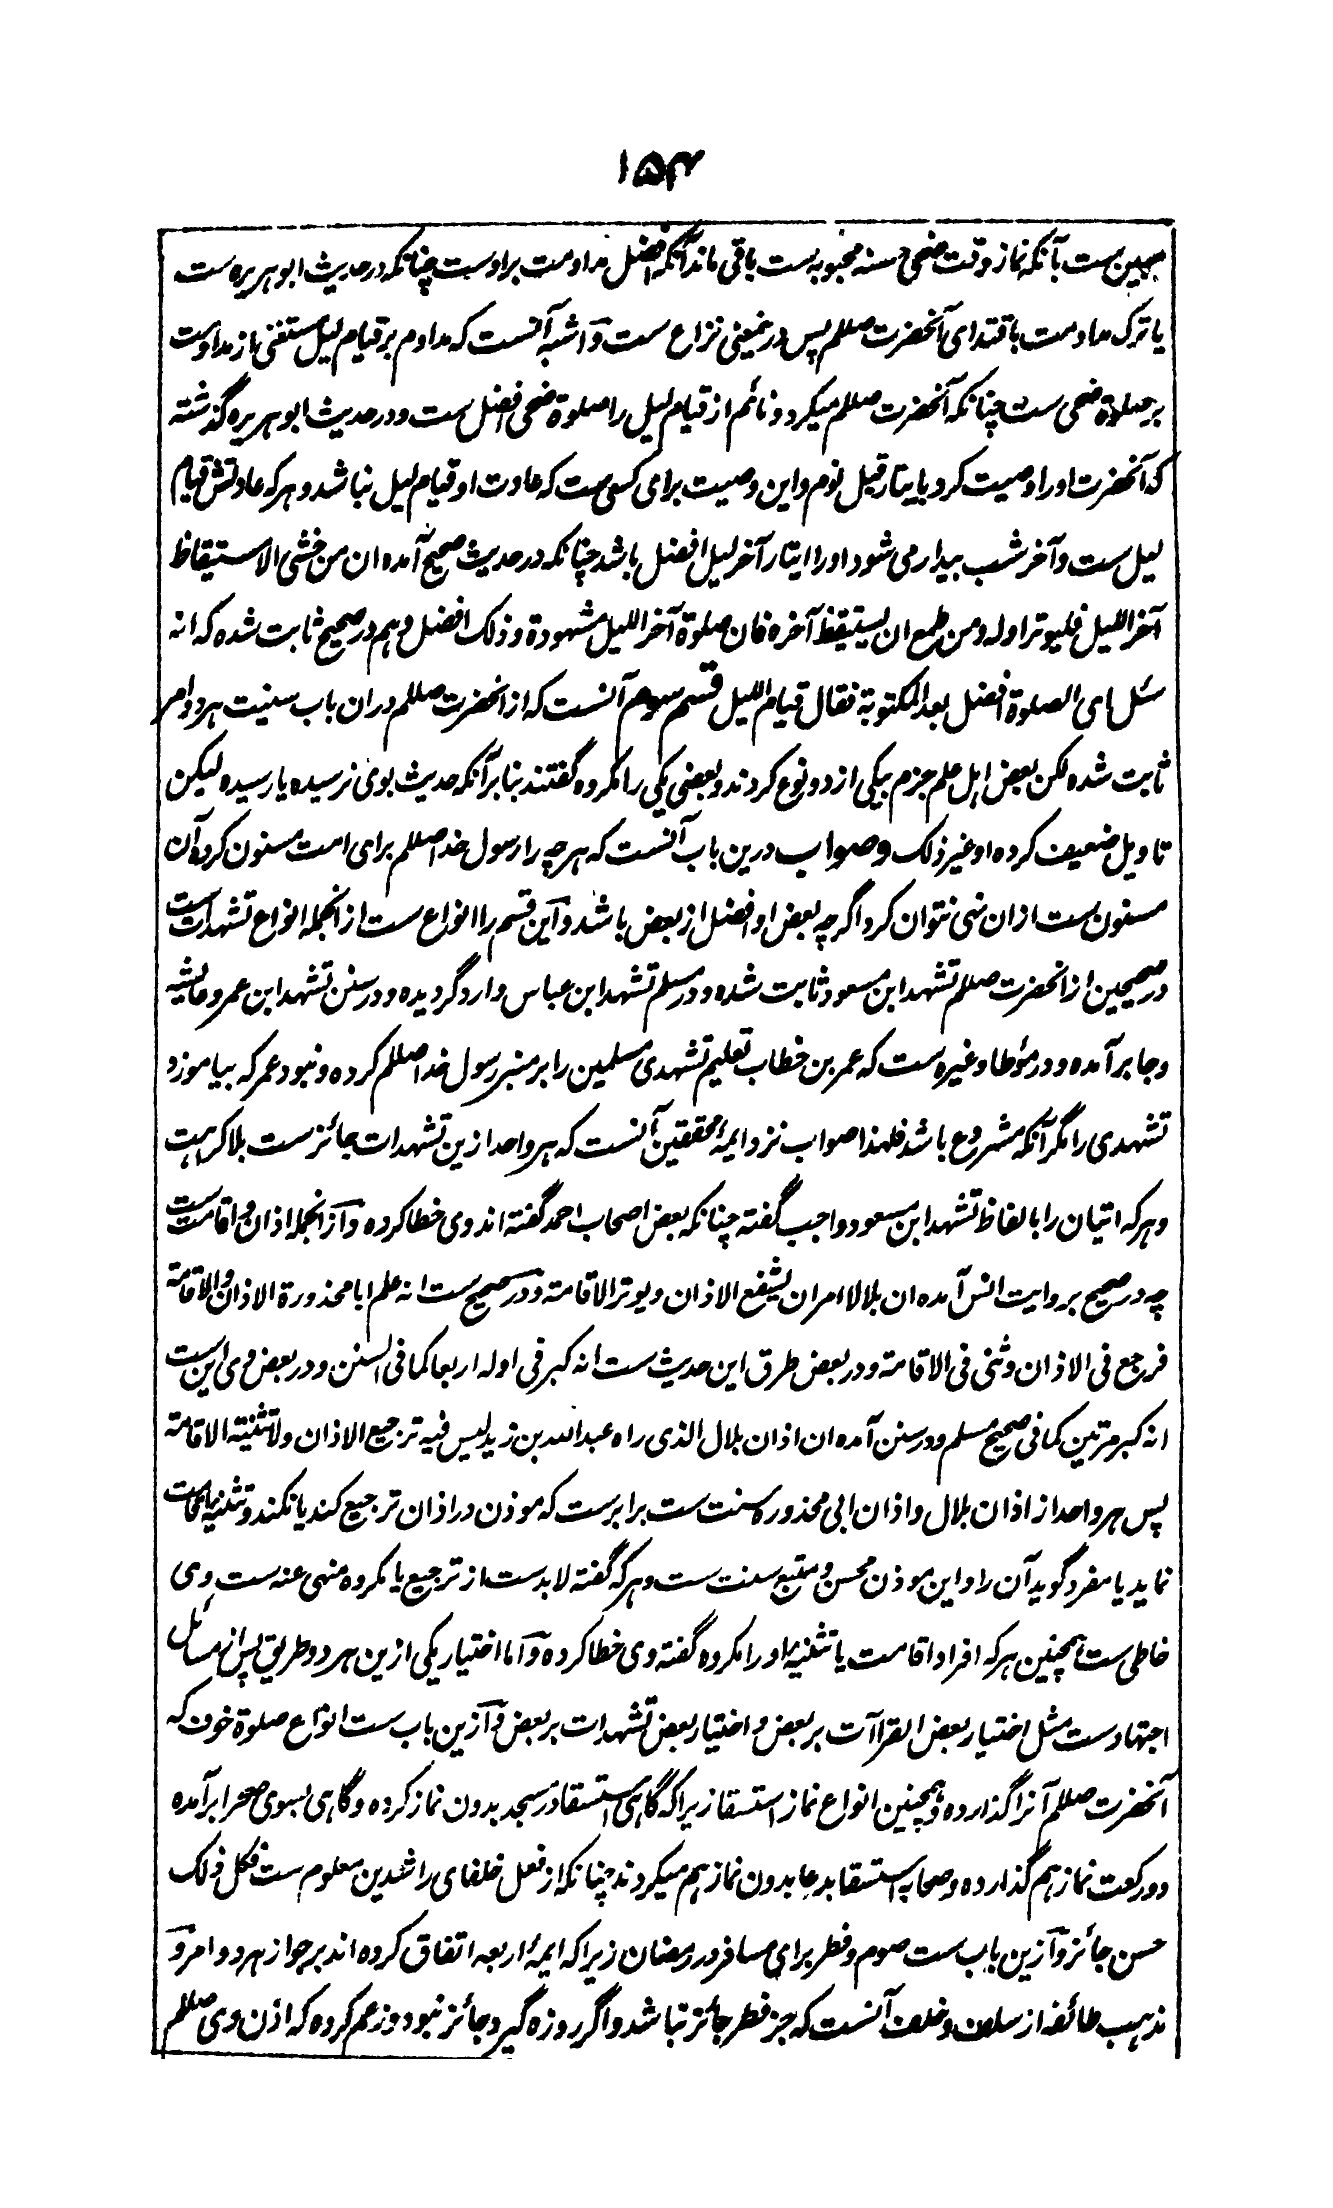 ۱۵۴
مبین ست بآنکه نماز وقت ضحی حسنه محبوبه ست باقی ماند آنکه افضل مداومت براوست چنانکه در حدیث ابو هریره ست
یا ترک مداومت باقتدای آنحضرت صللم پس درینمعنی نزاع ست و اشبه آنست که مداوم بر قیام لیل مستغنی از مداومت
بر صلوة ضحی ست چنانکه آنحضرت صللم میکرد و نائم از قیام لیل را صلوة ضحی افضل ست و در حدیث ابو هریره گذشته
که آنحضرت او را وصیت کرد بایتار قبل نوم و این وصیت برای کسی ست که عادت او قیام لیل نباشد و هر که عادتش قیام
لیل ست و آخر شب بیدار می شود او را ایتار آخر لیل افضل باشد چنانکه در حدیث صحیح آمده ان من خشی الا ستیقاظ
آخر اللیل فلیوتر اوله و من طمع ان یستیقظ آخره فان صلوة آخر اللیل مشهودة و ذلک افضل و هم در صحیح ثابت شده که انه
سئل ای الصلوة افضل بعد المکتوبة فقال قیام اللیل قسم سوم آنست که از آنحضرت صللم دران باب سنیت هر دو امر
ثابت شده لکن بعض اهل علم جزم بیکی از دو نوع کردند و بعضی یکی را مکروه گفتند بنا برآنکه حدیث بوی نرسیده یا رسیده لیکن
تاویل ضعیف کرده او غیر ذلک و صواب درین باب آنست که هر چه را رسول خدا صللم برای امت مسنون کرده آن
مسنون ست ازان نهی نتوان کرد اگرچه بعض او افضل از بعض باشد و این قسم را انواع ست ازانجمله انواع تشهدات ست
در صحیحین از آنحضرت صللم تشهد ابن مسعود ثابت شده و در مسلم تشهد ابن عباس وارد گردیده و در سنن تشهد ابن عمر و عایشه
و جابر آمده و در مؤطا و غیره ست که عمر بن خطاب تعلیم تشهدی مسلمین را بر منبر رسول خدا صللم کرده و نبود عمر که بیاموزد
تشهدی را مگر آنکه مشروع باشد فلهذا صواب نزد ایمۀ محققین آنست که هر واحد ازین تشهدات جائز ست بلا کراهت
و هر که اتیان را بالفاظ تشهد ابن مسعود واجب گفته چنانکه بعض اصحاب احمد گفته اند وی خطا کرده و ازانجمله اذان و اقامت ست
چه در صحیح بروایت انس آمده ان بلالا امر ان یشفع الاذان و یوتر الاقامة و در صحیح ست انه علم ابا محذورة الاذان و الاقامة
فرجع فی الاذان و ثنی فی الاقامة و در بعض طرق این حدیث ست انه کبر فی اوله اربعا کما فی السنن و در بعض وی این ست
انه کبر مرتین کما فی صحیح مسلم و در سنن آمده ان اذان بلال الذی راه عبدالله بن زید لیس فیه ترجیع الاذان ولا تثنیة الاقامة
پس هر واحد از اذان بلال و اذان ابی محذوره سنت ست برابرست که موذن در اذان ترجیع کند یا نکند و تثنیه اقامت
نماید یا مفرد گوید آن را و این موذن محسن و متبع سنت ست و هر که گفته لابدست از ترجیع یا مکروه منهی عنه ست وی
خاطی ست همچنین هر که افراد اقامت یا تثنیۀ او را مکروه گفته وی خطا کرده و اما اختیار یکی ازین هر دو طریق پس از مسائل
اجتهاد ست مثل اختیار بعض القراآت بر بعض و اختیار بعض تشهدات بر بعض و ازین باب ست انواع صلوة خوف که
آنحضرت صللم آنرا گذارده و همچنین انواع نماز استسقا زیرا که گاهی استسقا در مسجد بدون نماز کرده و گاهی بسوی صحرا برآمده
دو رکعت نماز هم گذارده و صحابه استسقا بدعا بدون نماز هم میکردند چنانکه از فعل خلفای راشدین معلوم ست فکل ذلک
حسن جائز و ازین باب ست صوم و فطر برای مسافر در رمضان زیرا که ایمۀ اربعه اتفاق کرده اند بر جواز هر دو امر و
مذهب طائفه از سلف و خلف آنست که جز فطر جائز نباشد و اگر روزه گیرد جائز نبود و زعم کرده که اذن وی صللم